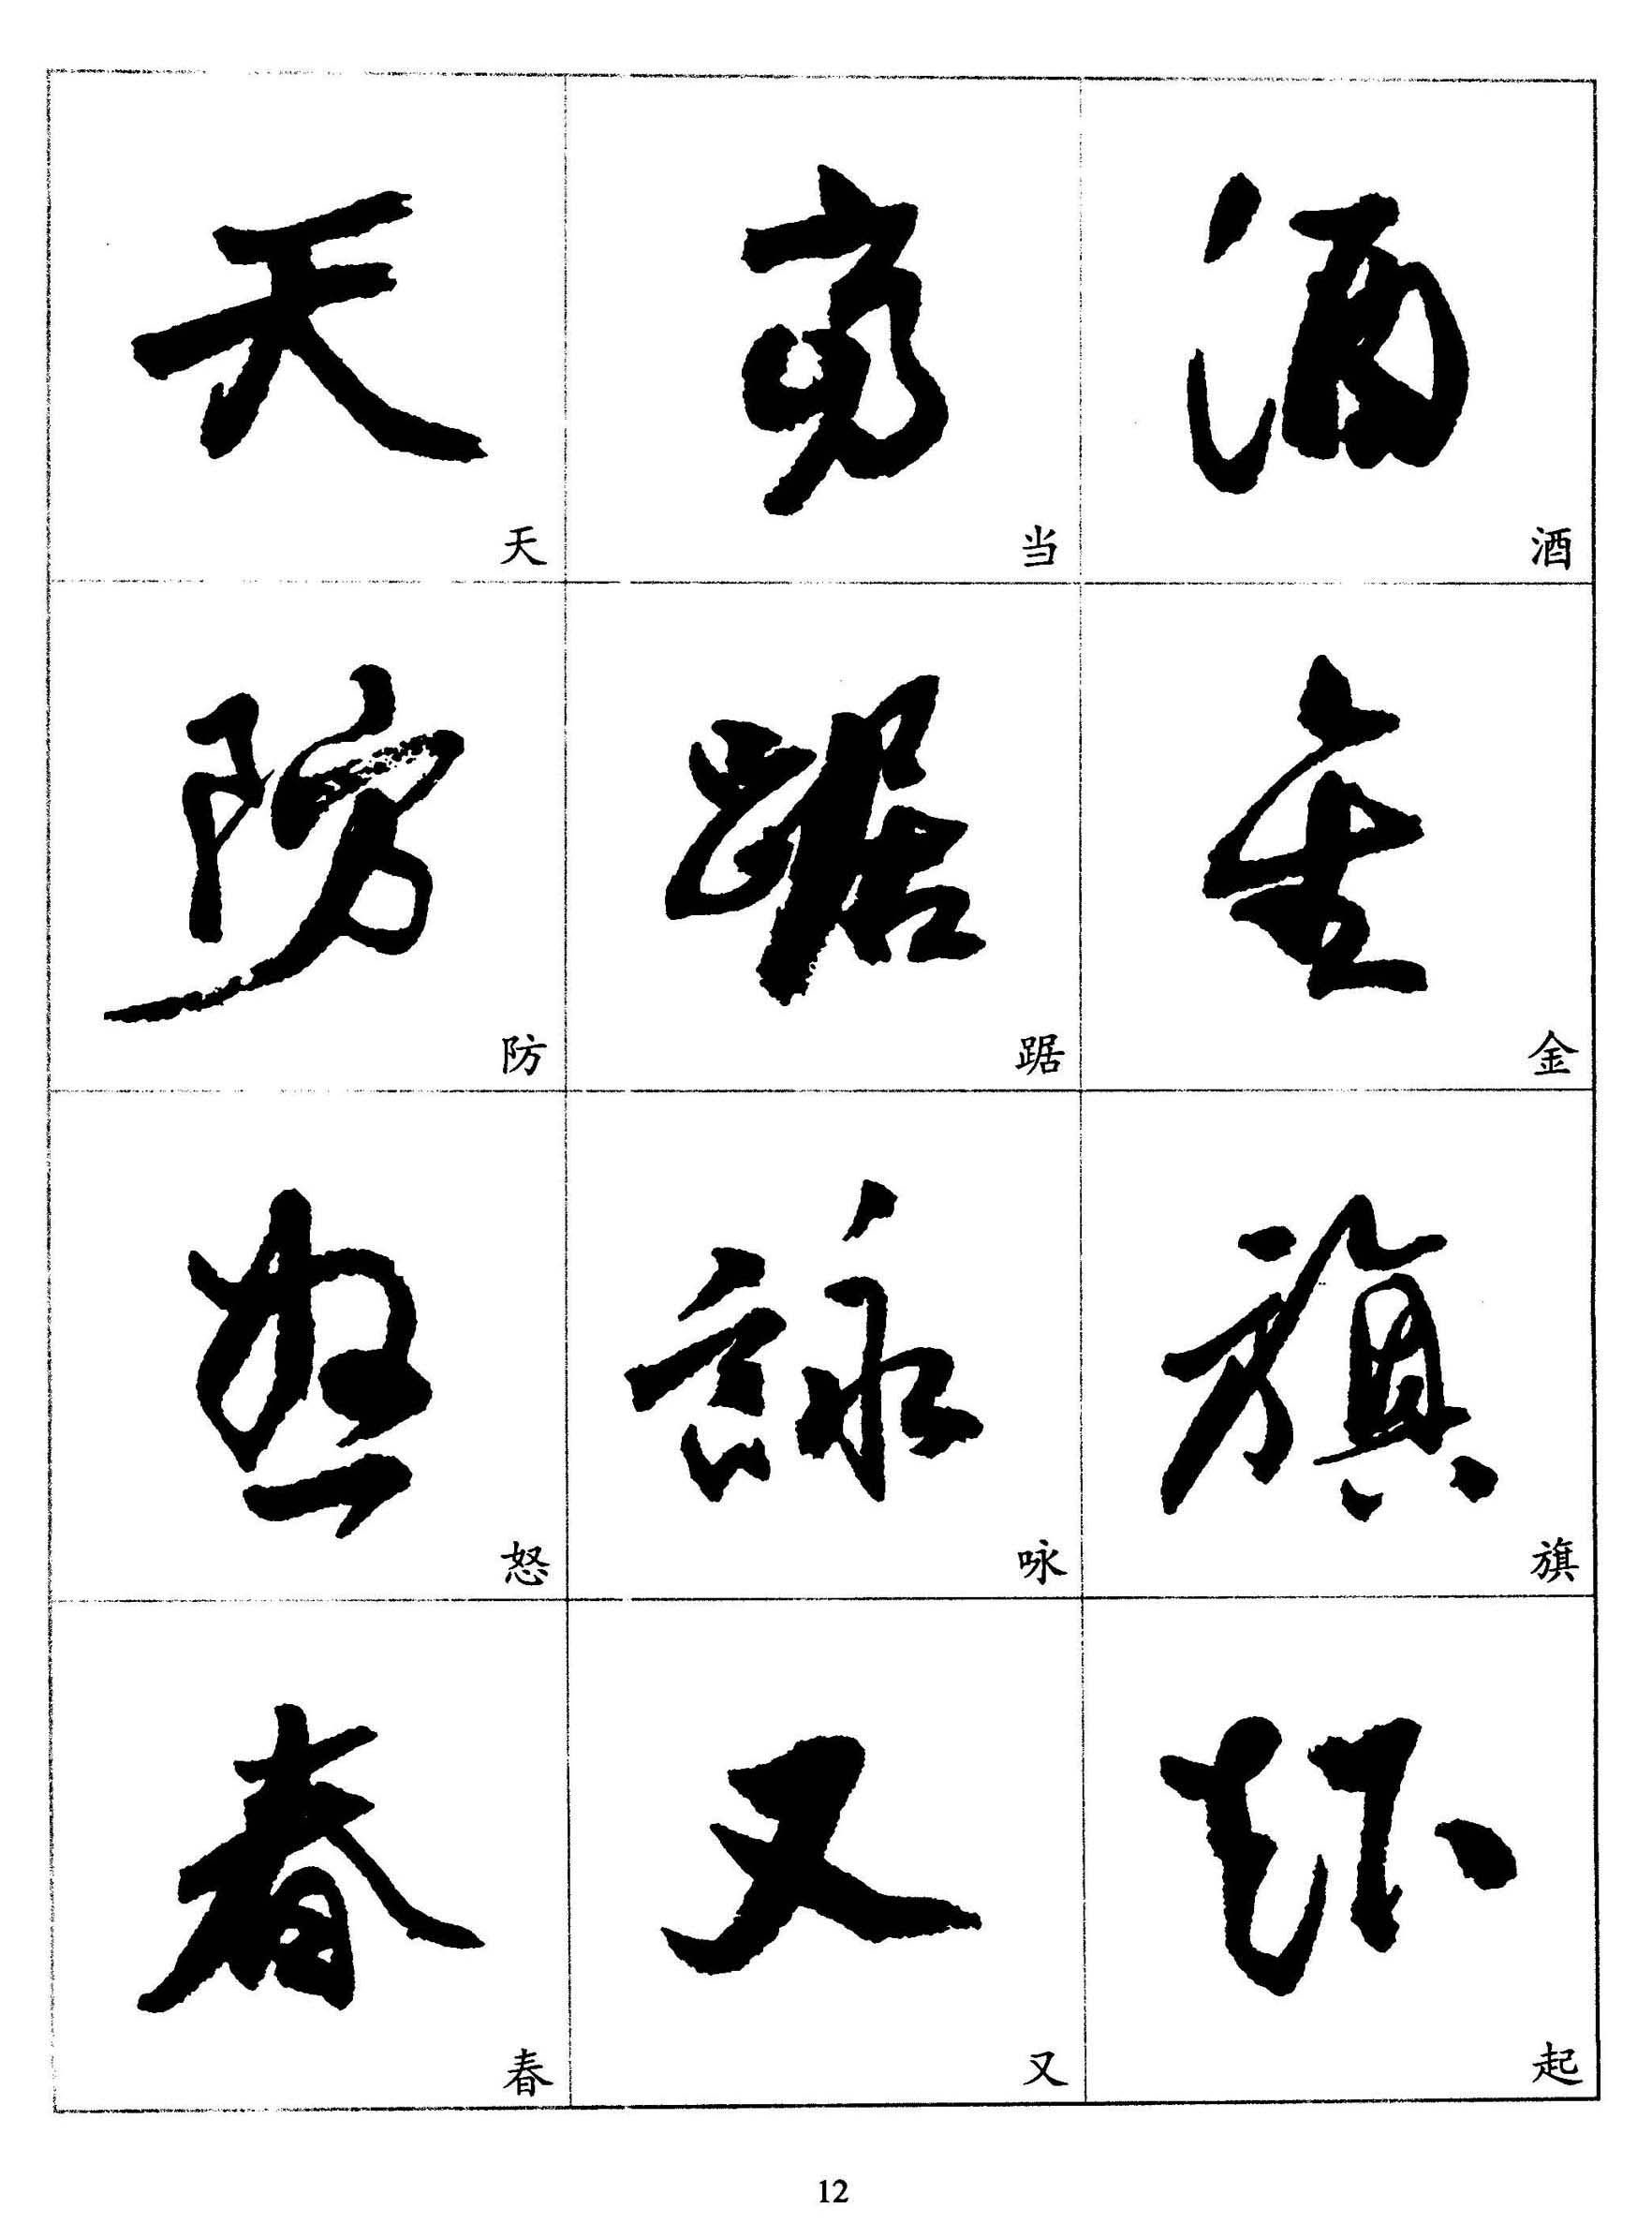 天 当 酒
天 当 酒
防 踞 金
防 踞 金
怒 詠 旗
怒 咏 旗
春 又 起
春 又 起
12